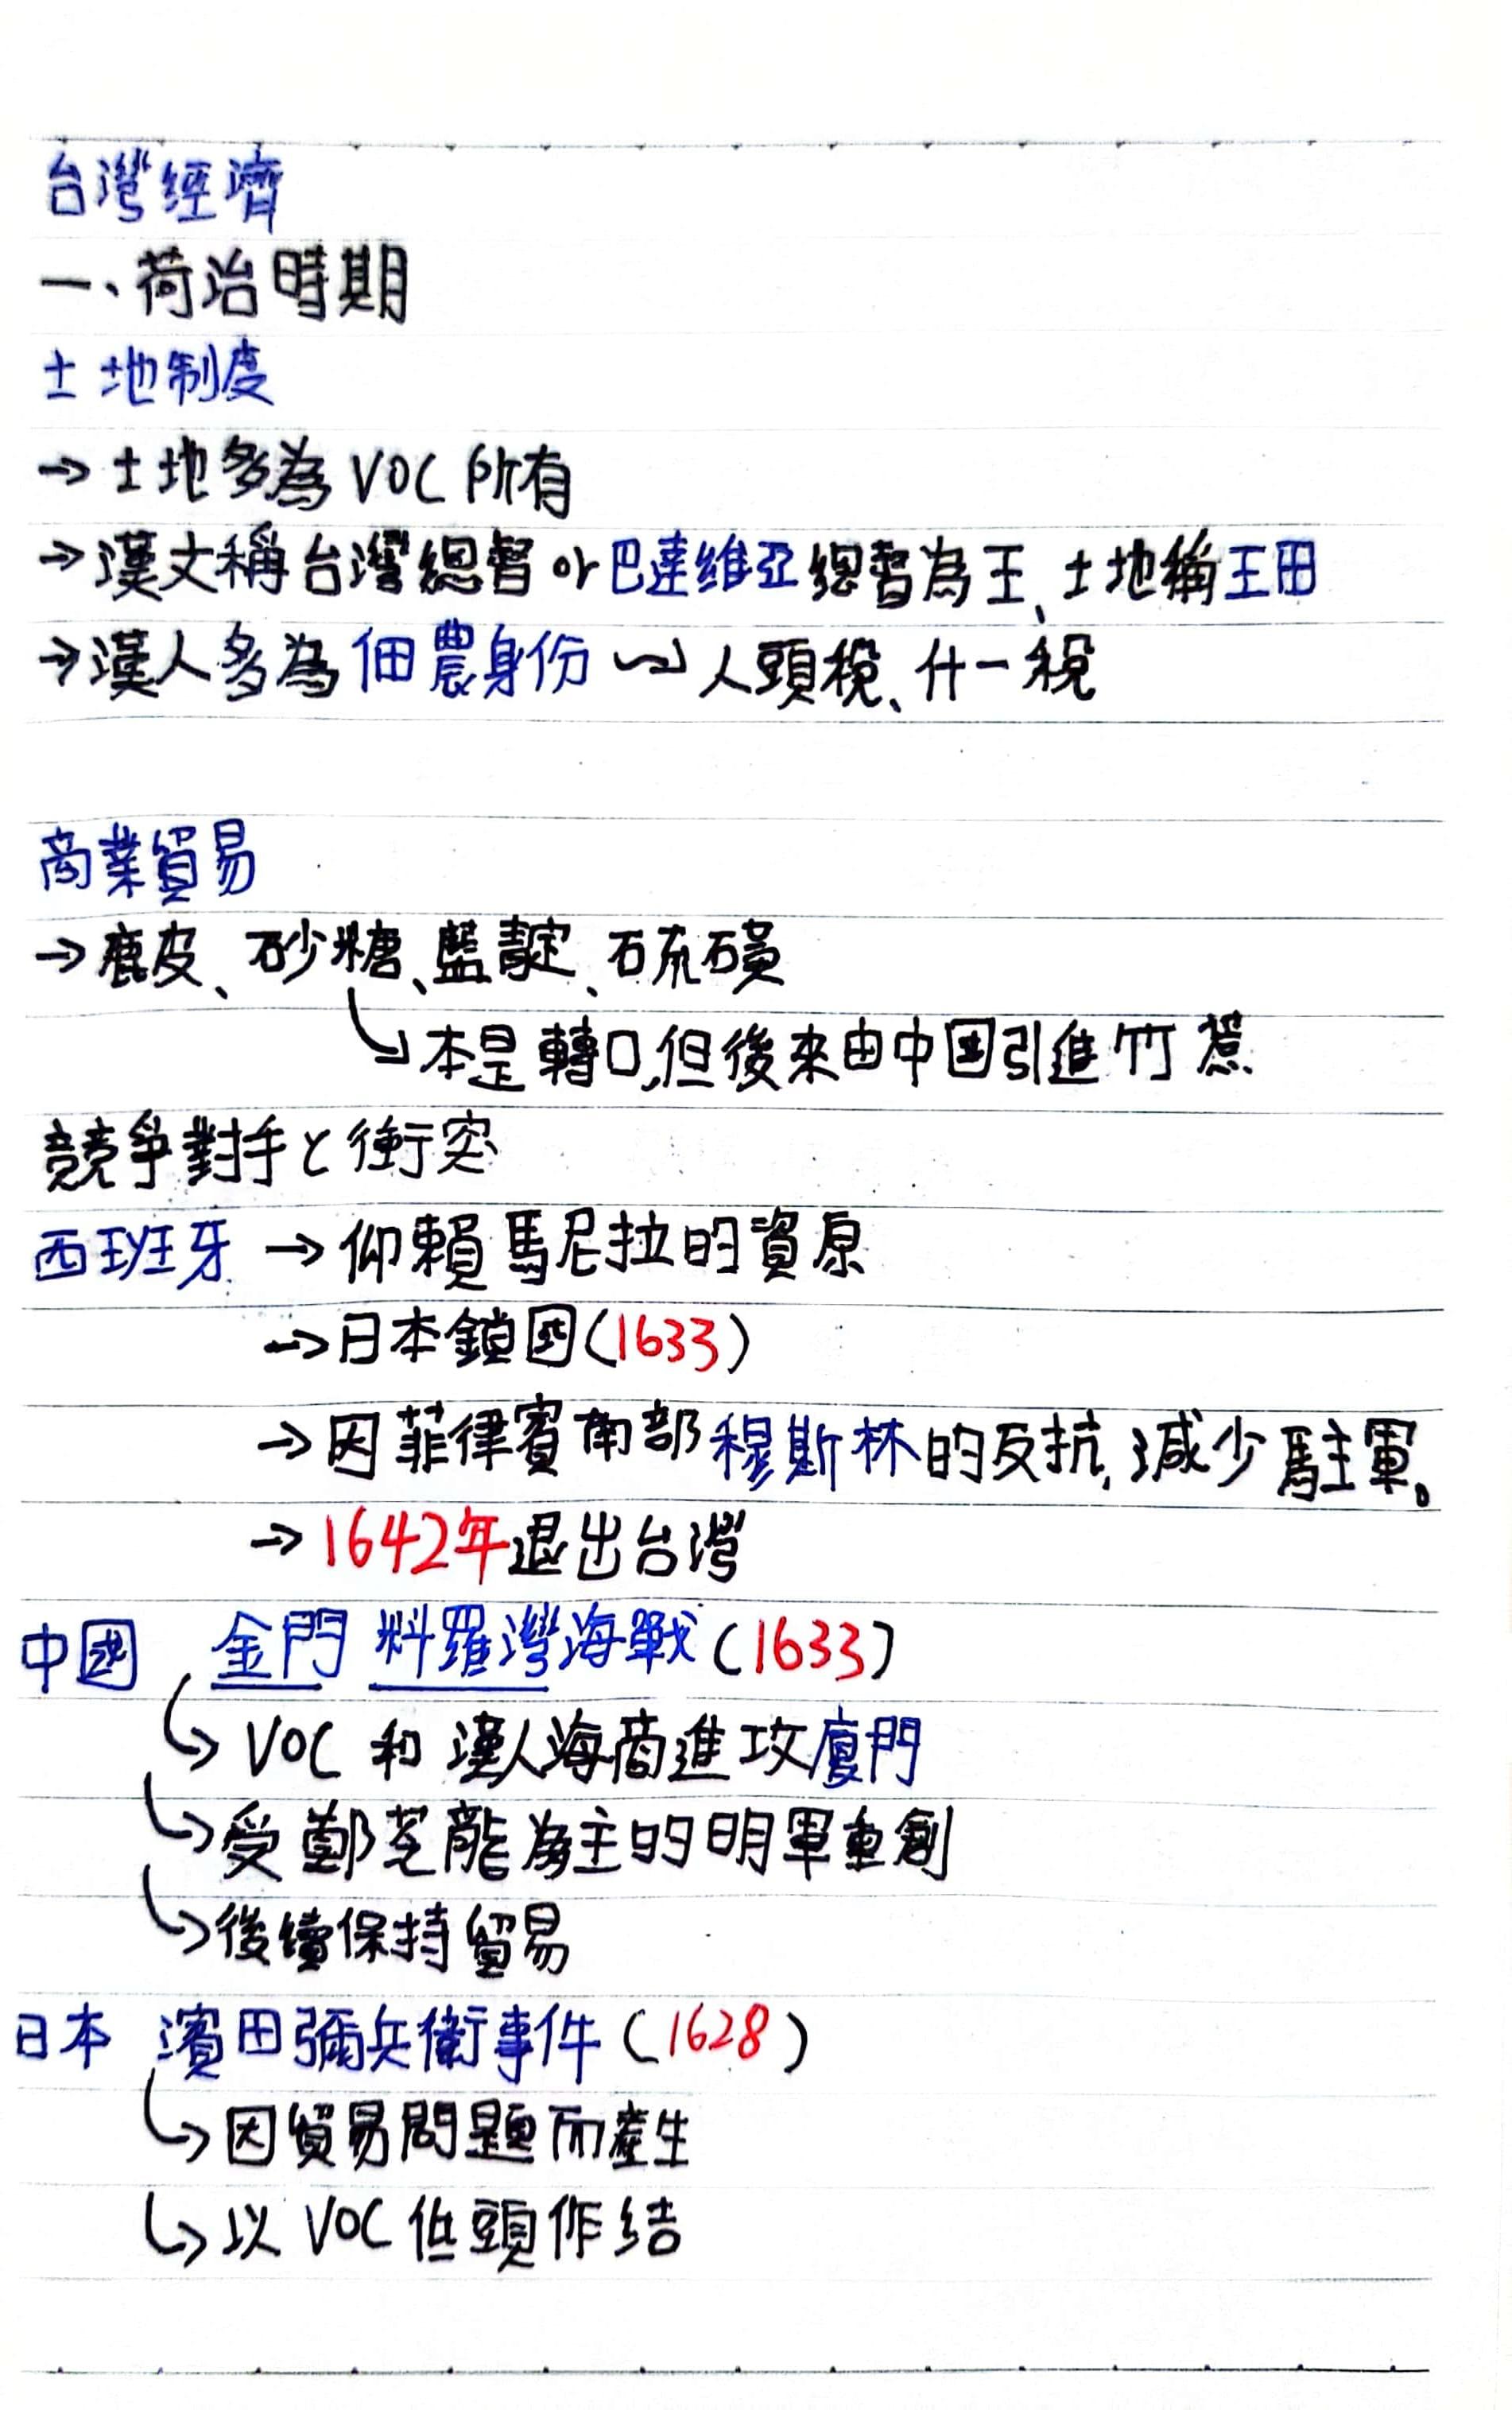 台灣經濟
一、荷治時期
土地制度
→土地多為VOC所有
→漢文稱台灣總督or巴達維亞總督為王、土地稱王田
→漢人多為佃農身份⇝人頭稅、什一稅
商業貿易
→鹿皮、砂糖、藍靛、硫磺
↳本是轉口,但後來由中国引進竹蔗
競爭對手と衝突
西班牙→仰賴馬尼拉的資原
→日本鎖国(1633)
→因菲律賓南部穆斯林的反抗,減少駐軍。
→1642年退出台灣
中國 金門 料羅灣海戰(1633)
↳VOC和漢人海商進攻廈門
↳受鄭芝龍為主的明軍重創
↳後續保持貿易
日本 濱田彌兵衛事件(1628)
↳因貿易問題而產生
↳以VOC低頭作結